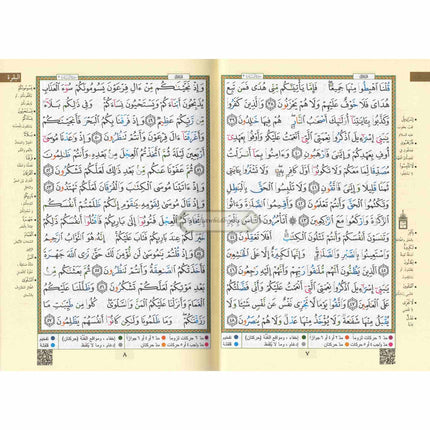 قُلْنَا ٱهْبِطُوا۟ مِنْهَا جَمِيعًا فَإِمَّا يَأْتِيَنَّكُم مِّنِّى هُدًى فَمَن تَبِعَ
هُدَاىَ فَلَا خَوْفٌ عَلَيْهِمْ وَلَا هُمْ يَحْزَنُونَ ٣٨ وَٱلَّذِينَ كَفَرُوا۟
وَكَذَّبُوا۟ بِـَٔايَٰتِنَآ أُو۟لَٰٓئِكَ أَصْحَٰبُ ٱلنَّارِ هُمْ فِيهَا خَٰلِدُونَ ٣٩
يَٰبَنِىٓ إِسْرَٰٓءِيلَ ٱذْكُرُوا۟ نِعْمَتِىَ ٱلَّتِىٓ أَنْعَمْتُ عَلَيْكُمْ وَأَوْفُوا۟ بِعَهْدِىٓ
أُوفِ بِعَهْدِكُمْ وَإِيَّٰىَ فَٱرْهَبُونِ ٤٠ وَءَامِنُوا۟ بِمَآ أَنزَلْتُ
مُصَدِّقًا لِّمَا مَعَكُمْ وَلَا تَكُونُوٓا۟ أَوَّلَ كَافِرٍۭ بِهِۦ وَلَا تَشْتَرُوا۟
بِـَٔايَٰتِى ثَمَنًا قَلِيلًا وَإِيَّٰىَ فَٱتَّقُونِ ٤١ وَلَا تَلْبِسُوا۟ ٱلْحَقَّ بِٱلْبَٰطِلِ
وَتَكْتُمُوا۟ ٱلْحَقَّ وَأَنتُمْ تَعْلَمُونَ ٤٢ وَأَقِيمُوا۟ ٱلصَّلَوٰةَ وَءَاتُوا۟
ٱلزَّكَوٰةَ وَٱرْكَعُوا۟ مَعَ ٱلرَّٰكِعِينَ ٤٣ أَتَأْمُرُونَ ٱلنَّاسَ بِٱلْبِرِّ
وَتَنسَوْنَ أَنفُسَكُمْ وَأَنتُمْ تَتْلُونَ ٱلْكِتَٰبَ أَفَلَا تَعْقِلُونَ ٤٤
وَٱسْتَعِينُوا۟ بِٱلصَّبْرِ وَٱلصَّلَوٰةِ وَإِنَّهَا لَكَبِيرَةٌ إِلَّا عَلَى ٱلْخَٰشِعِينَ
٤٥ ٱلَّذِينَ يَظُنُّونَ أَنَّهُم مُّلَٰقُوا۟ رَبِّهِمْ وَأَنَّهُمْ إِلَيْهِ رَٰجِعُونَ ٤٦
يَٰبَنِىٓ إِسْرَٰٓءِيلَ ٱذْكُرُوا۟ نِعْمَتِىَ ٱلَّتِىٓ أَنْعَمْتُ عَلَيْكُمْ وَأَنِّى فَضَّلْتُكُمْ
عَلَى ٱلْعَٰلَمِينَ ٤٧ وَٱتَّقُوا۟ يَوْمًا لَّا تَجْزِى نَفْسٌ عَن نَّفْسٍ شَيْـًٔا وَلَا
يُقْبَلُ مِنْهَا شَفَٰعَةٌ وَلَا يُؤْخَذُ مِنْهَا عَدْلٌ وَلَا هُمْ يُنصَرُونَ ٤٨
٧
البقرة
وَإِذْ نَجَّيْنَٰكُم مِّنْ ءَالِ فِرْعَوْنَ يَسُومُونَكُمْ سُوٓءَ ٱلْعَذَابِ
يُذَبِّحُونَ أَبْنَآءَكُمْ وَيَسْتَحْيُونَ نِسَآءَكُمْ وَفِى ذَٰلِكُم بَلَآءٌ
مِّن رَّبِّكُمْ عَظِيمٌ ٤٩ وَإِذْ فَرَقْنَا بِكُمُ ٱلْبَحْرَ فَأَنجَيْنَٰكُمْ
وَأَغْرَقْنَآ ءَالَ فِرْعَوْنَ وَأَنتُمْ تَنظُرُونَ ٥٠ وَإِذْ وَٰعَدْنَا مُوسَىٰٓ
أَرْبَعِينَ لَيْلَةً ثُمَّ ٱتَّخَذْتُمُ ٱلْعِجْلَ مِنۢ بَعْدِهِۦ وَأَنتُمْ ظَٰلِمُونَ
٥١ ثُمَّ عَفَوْنَا عَنكُم مِّنۢ بَعْدِ ذَٰلِكَ لَعَلَّكُمْ تَشْكُرُونَ ٥٢
وَإِذْ ءَاتَيْنَا مُوسَى ٱلْكِتَٰبَ وَٱلْفُرْقَانَ لَعَلَّكُمْ تَهْتَدُونَ ٥٣
وَإِذْ قَالَ مُوسَىٰ لِقَوْمِهِۦ يَٰقَوْمِ إِنَّكُمْ ظَلَمْتُمْ أَنفُسَكُم
بِٱتِّخَاذِكُمُ ٱلْعِجْلَ فَتُوبُوٓا۟ إِلَىٰ بَارِئِكُمْ فَٱقْتُلُوٓا۟ أَنفُسَكُمْ ذَٰلِكُمْ
خَيْرٌ لَّكُمْ عِندَ بَارِئِكُمْ فَتَابَ عَلَيْكُمْ إِنَّهُۥ هُوَ ٱلتَّوَّابُ ٱلرَّحِيمُ
٥٤ وَإِذْ قُلْتُمْ يَٰمُوسَىٰ لَن نُّؤْمِنَ لَكَ حَتَّىٰ نَرَى ٱللَّهَ جَهْرَةً
فَأَخَذَتْكُمُ ٱلصَّٰعِقَةُ وَأَنتُمْ تَنظُرُونَ ٥٥ ثُمَّ بَعَثْنَٰكُم
مِّنۢ بَعْدِ مَوْتِكُمْ لَعَلَّكُمْ تَشْكُرُونَ ٥٦ وَظَلَّلْنَا عَلَيْكُمُ
ٱلْغَمَامَ وَأَنزَلْنَا عَلَيْكُمُ ٱلْمَنَّ وَٱلسَّلْوَىٰ كُلُوا۟ مِن طَيِّبَٰتِ مَا
رَزَقْنَٰكُمْ وَمَا ظَلَمُونَا وَلَٰكِن كَانُوٓا۟ أَنفُسَهُمْ يَظْلِمُونَ ٥٧
٨